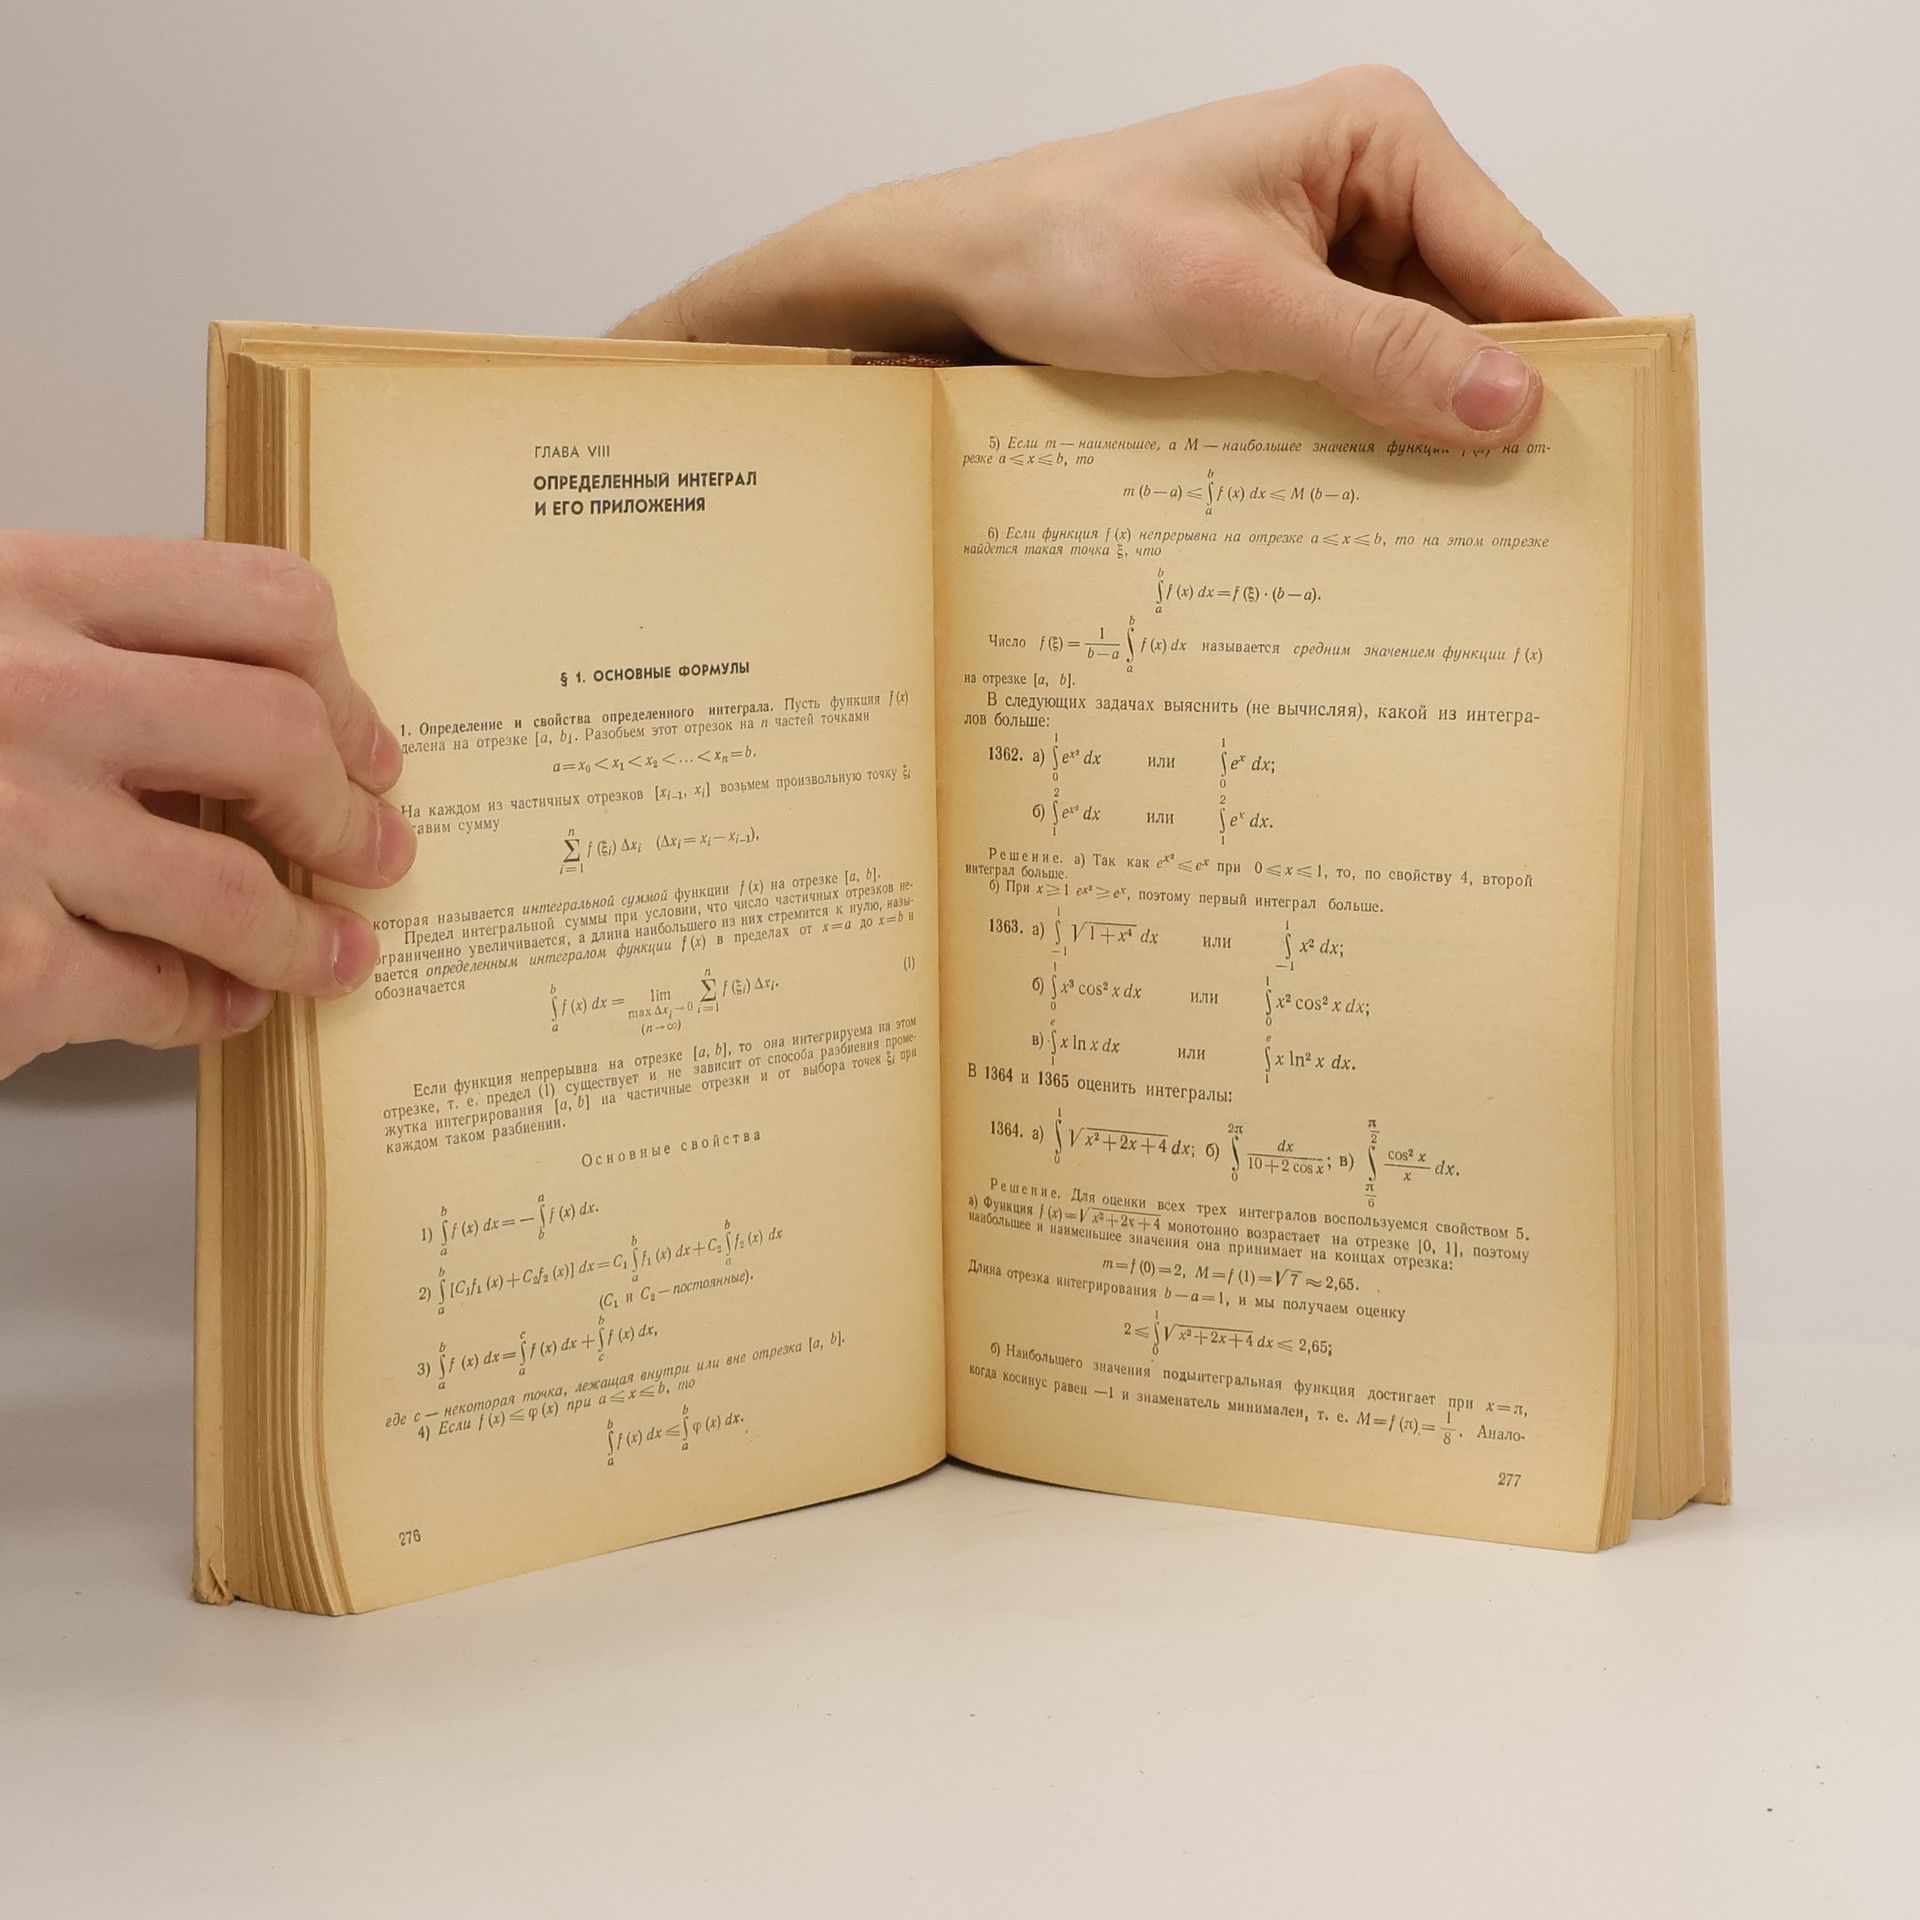 ГЛАВА VIII
ОПРЕДЕЛЕННЫЙ ИНТЕГРАЛ
И ЕГО ПРИЛОЖЕНИЯ
§ 1. ОСНОВНЫЕ ФОРМУЛЫ
1. Определение и свойства определенного интеграла. Пусть функция f (x)
делена на отрезке [a, b]. Разобьем этот отрезок на n частей точками
a=x₀<x₁<x₂<...<xₙ=b.
На каждом из частичных отрезков [xᵢ₋₁, xᵢ] возьмем произвольную точку ξᵢ
тавим сумму
n∑i=1 f (ξᵢ) Δxᵢ (Δxᵢ=xᵢ—xᵢ₋₁),
которая называется интегральной суммой функции f (x) на отрезке [a, b].
Предел интегральной суммы при условии, что число частичных отрезков не-
ограниченно увеличивается, а длина наибольшего из них стремится к нулю, назы-
вается определенным интегралом функции f (x) в пределах от x=a до x=b и
обозначается
b∫a f (x) dx = lim max Δxᵢ→0 (n→∞) n∑i=1 f (ξᵢ) Δxᵢ. (1)
Если функция непрерывна на отрезке [a, b], то она интегрируема на этом
отрезке, т. е. предел (1) существует и не зависит от способа разбиения проме-
жутка интегрирования [a, b] на частичные отрезки и от выбора точек ξᵢ при
каждом таком разбиении.
Основные свойства
1) b∫a f (x) dx=— a∫b f (x) dx.
2) b∫a [C₁f₁ (x)+C₂f₂ (x)] dx=C₁ b∫a f₁ (x) dx+C₂ b∫a f₂ (x) dx
(C₁ и C₂—постоянные).
3) b∫a f (x) dx= c∫a f (x) dx+ b∫c f (x) dx,
где c — некоторая точка, лежащая внутри или вне отрезка [a, b].
4) Если f (x)⩽φ (x) при a⩽x⩽b, то
b∫a f (x) dx⩽ b∫a φ (x) dx.
276
5) Если m — наименьшее, а M — наибольшее значения функции на от-
резке a⩽x⩽b, то
m (b—a)⩽ b∫a f (x) dx⩽M (b—a).
6) Если функция f (x) непрерывна на отрезке a⩽x⩽b, то на этом отрезке
найдется такая точка ξ, что
b∫a f (x) dx=f (ξ)·(b—a).
Число f (ξ)= 1/(b—a) b∫a f (x) dx называется средним значением функции f (x)
на отрезке [a, b].
В следующих задачах выяснить (не вычисляя), какой из интегра-
лов больше:
1362. а) 1∫0 eˣ² dx или 1∫0 eˣ dx;
б) 2∫1 eˣ² dx или 2∫1 eˣ dx.
Решение. а) Так как eˣ²⩽eˣ при 0⩽x⩽1, то, по свойству 4, второй
интеграл больше.
б) При x⩾1 eˣ²⩾eˣ, поэтому первый интеграл больше.
1363. а) 1∫—1 √(1+x⁴) dx или 1∫—1 x² dx;
б) 1∫0 x³ cos² x dx или 1∫0 x² cos² x dx;
в) e∫1 x ln x dx или e∫1 x ln² x dx.
В 1364 и 1365 оценить интегралы:
1364. а) 1∫0 √(x²+2x+4) dx; б) 2π∫0 dx/(10+2 cos x); в) π/2∫π/6 (cos² x)/x dx.
Решение. Для оценки всех трех интегралов воспользуемся свойством 5.
а) Функция f (x)=√(x²+2x+4) монотонно возрастает на отрезке [0, 1], поэтому
наибольшее и наименьшее значения она принимает на концах отрезка:
m=f (0)=2, M=f (1)=√7≈2,65.
Длина отрезка интегрирования b—a=1, и мы получаем оценку
2⩽ 1∫0 √(x²+2x+4) dx⩽2,65;
б) Наибольшего значения подынтегральная функция достигает при x=π,
когда косинус равен —1 и знаменатель минимален, т. е. M=f (π)=1/8. Анало-
277